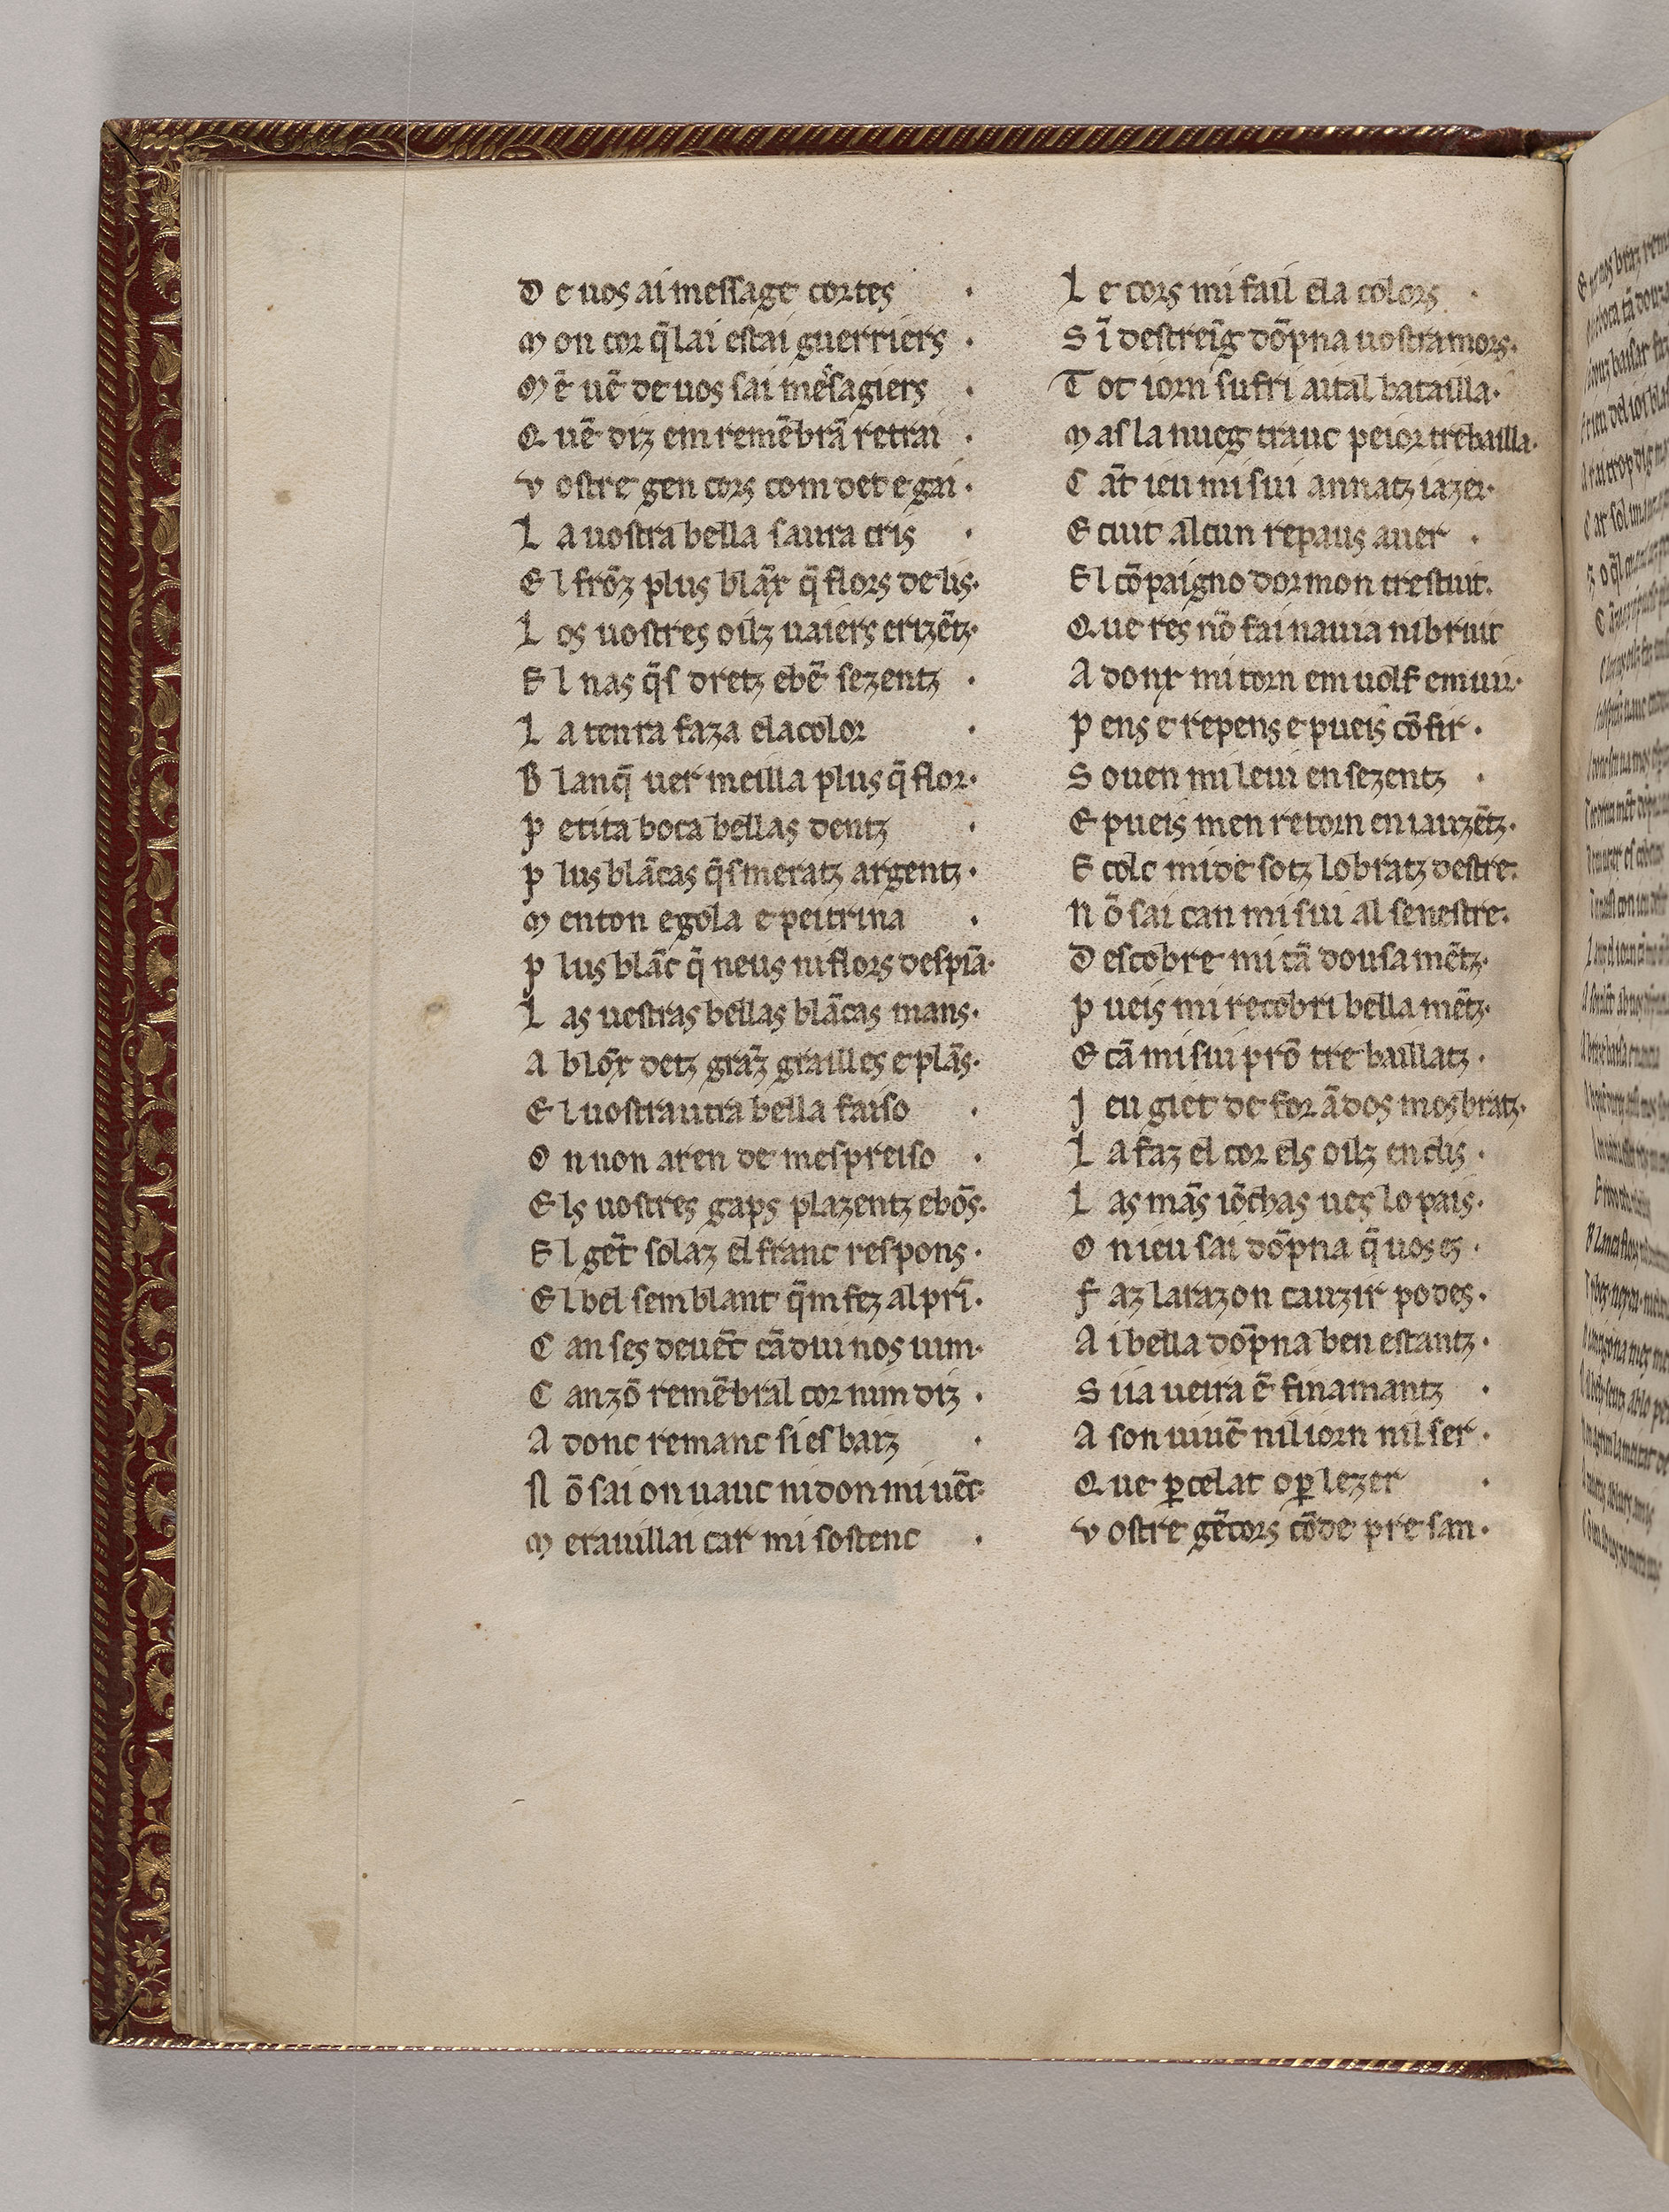 D e uos ai message cortes ·
M on cor q̃ lai estai guerriers ·
M ẽ uẽ de uos sai mesagiers ·
Q uẽ diz em remẽbrã retrai ·
V ostre gen cors com det e gai ·
L a uostra bella saura cris ·
E l frõz plus blãx q̃ flors de lis ·
L os uostres oilz uaiers erizẽtz ·
E l nas q̃s dretz ebẽ sezentz ·
L a tenra faza ela color ·
B lanq̃ uer meilla plus q̃ flor ·
P etita boca bellas dentz ·
P lus blãcas q̃smeratz argentz ·
M enton e gola e peitrina ·
P lus blãc q̃ neus ni flors despiã ·
L as uestras bellas blãcas mans ·
A b lõx detz grãz grailles e plãs ·
E l uostrautra bella faiso ·
O n non a ren de mespreiso ·
E ls uostres gaps plazentz ebõs ·
E l gẽt solaz el franc respons ·
E l bel semblant q̃m fez al prĩ ·
C an ses deuẽt cã dui nos uim ·
C anzõ remẽbral cor num diz ·
A donc remanc si es baiz ·
N õ sai on uauc ni don mi uẽc ·
M erauillai car mi sostenc ·
L e cors mi fail ela colors ·
S ĩ destreĩg dõpna uostramors ·
T ot iorn sufri aital batailla ·
M as la nueg trauc peior trebailla ·
C ãt ieu mi sui annatz iazer ·
E cuit alcun repaus auer ·
E l cõpaigno dormon trestuit ·
Q ue res nõ fai nauia ni bruit
A donx mi torn em uolf emuir ·
P ens e repens e pueis cõsir ·
S ouen mi leui en sezentz ·
E pueis men retorn en iauzẽtz ·
E colc mi de sotz lo bratz destre ·
N õ sai can mi sui al senestre ·
D escobre mi tã dousamẽtz ·
P ueis mi recobri bellamẽtz ·
E cã mi sui prõ trebaillatz ·
J eu giet de for ãdos mos bratz ·
L a faz el cor els oilz enclis ·
L as mãs iõchas ues lo pais ·
O n ieu sai dõpna q̃ uos es ·
F az la razon cauzir podes ·
A i bella dõpna ben estantz ·
S iia ueira ẽ finamantz ·
A son uiuẽ nil iorn nil ser ·
Q ue p̱ celat o p̱ lezer ·
V ostre gẽcors cõde presan ·